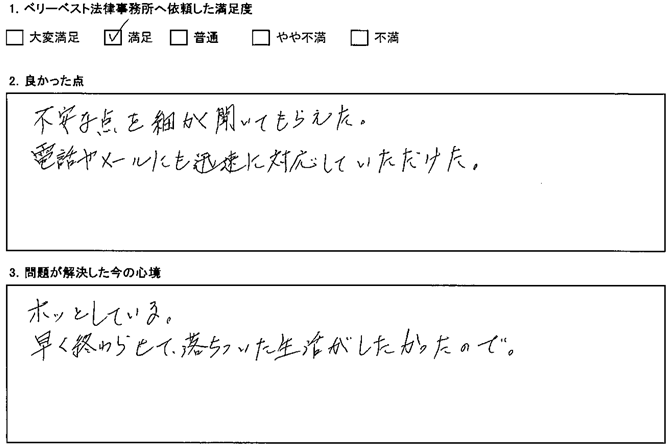 1. ベリーベスト法律事務所へ依頼した満足度
□ 大変満足 ☑ 満足 □ 普通 □ やや不満 □ 不満
2. 良かった点
不安な点を細かく聞いてもらえた。
電話やメールにも迅速に対応していただけた。
3. 問題が解決した今の心境
ホッとしている。
早く終わらせて、落ちついた生活がしたかったので。